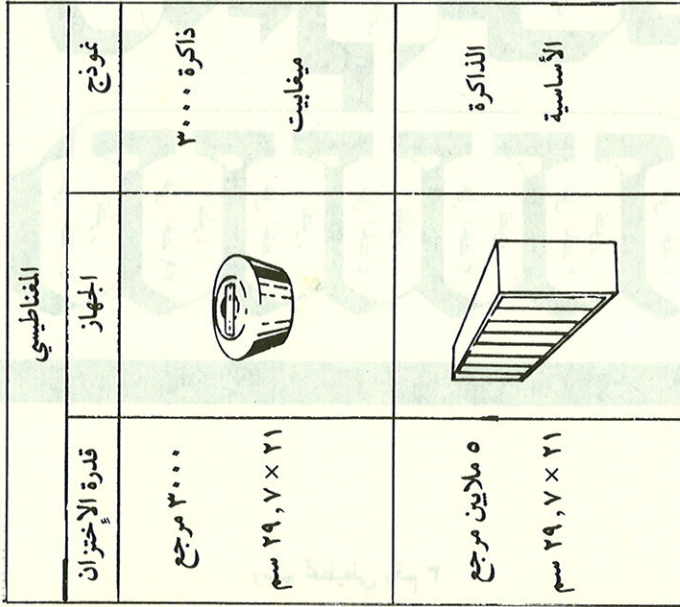 المغناطيسي
نموذج
الجهاز
قدرة الإختزان
ذاكرة ٣٠٠٠
ميغابيت
٣٠٠٠ مرجع
٢١ × ٢٩,٧ سم
الذاكرة
الأساسية
٥ ملايين مرجع
٢١ × ٢٩,٧ سم